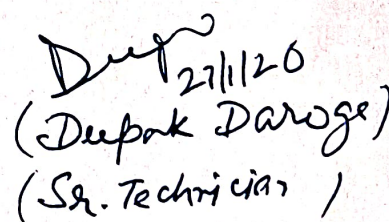 Deep
27/1/20
(Deepak Daroge)
(Sr. Technician)